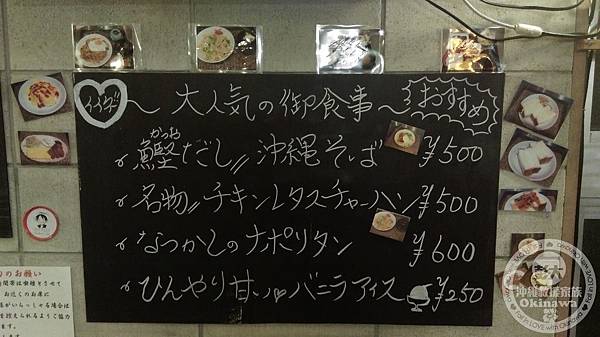 大人気の御食事
おすすめ
かつお
鰹だし〃沖縄そば ¥500
名物〃チキンレタスチャーハン ¥500
なつかしのナポリタン ¥600
ひんやり甘い バニラアイス ¥250
のお願い
沖縄救援家族
Okinawa